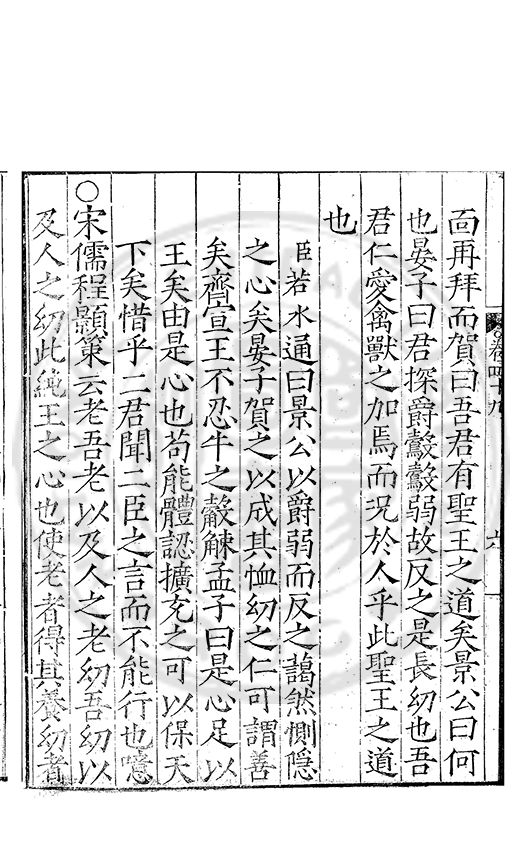 面再拜而賀曰吾君有聖王之道矣景公曰何
也晏子曰君探爵鷇鷇弱故反之是長幼也吾
君仁愛禽獸之加焉而況於人乎此聖王之道
也
臣若水通曰景公以爵弱而反之藹然惻隱
之心矣晏子賀之以成其恤幼之仁可謂善
矣齊宣王不忍牛之觳觫孟子曰是心足以
王矣由是心也苟能體認擴充之可以保天
下矣惜乎二君聞二臣之言而不能行也噫
○宋儒程顥策云老吾老以及人之老幼吾幼以
及人之幼此純王之心也使老者得其養幼者
卷四十九
六